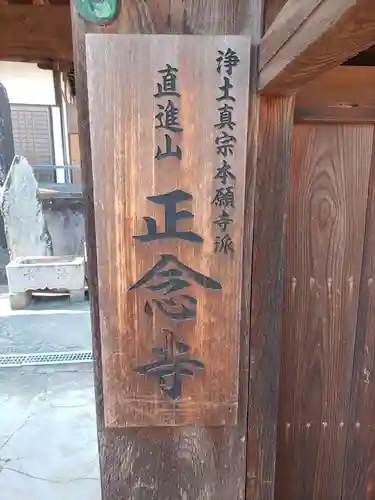 浄土真宗本願寺派
直進山
正念寺